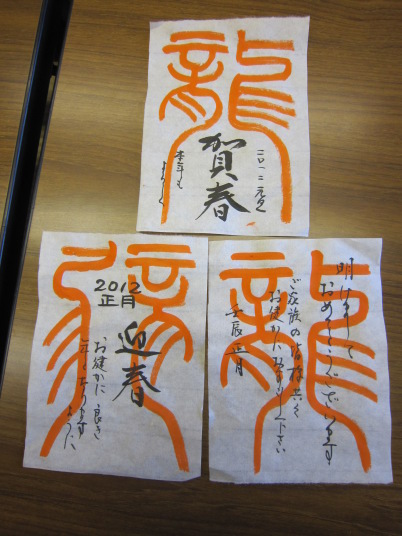 龍
二〇一二元旦
賀春
本年も
よろしく
2012
正月
迎春
お健かに 良き
年となります
ように
龍
明けまして
おめでとうございます
ご家族の皆様共々
お健かにお過し下さい
壬辰 正月